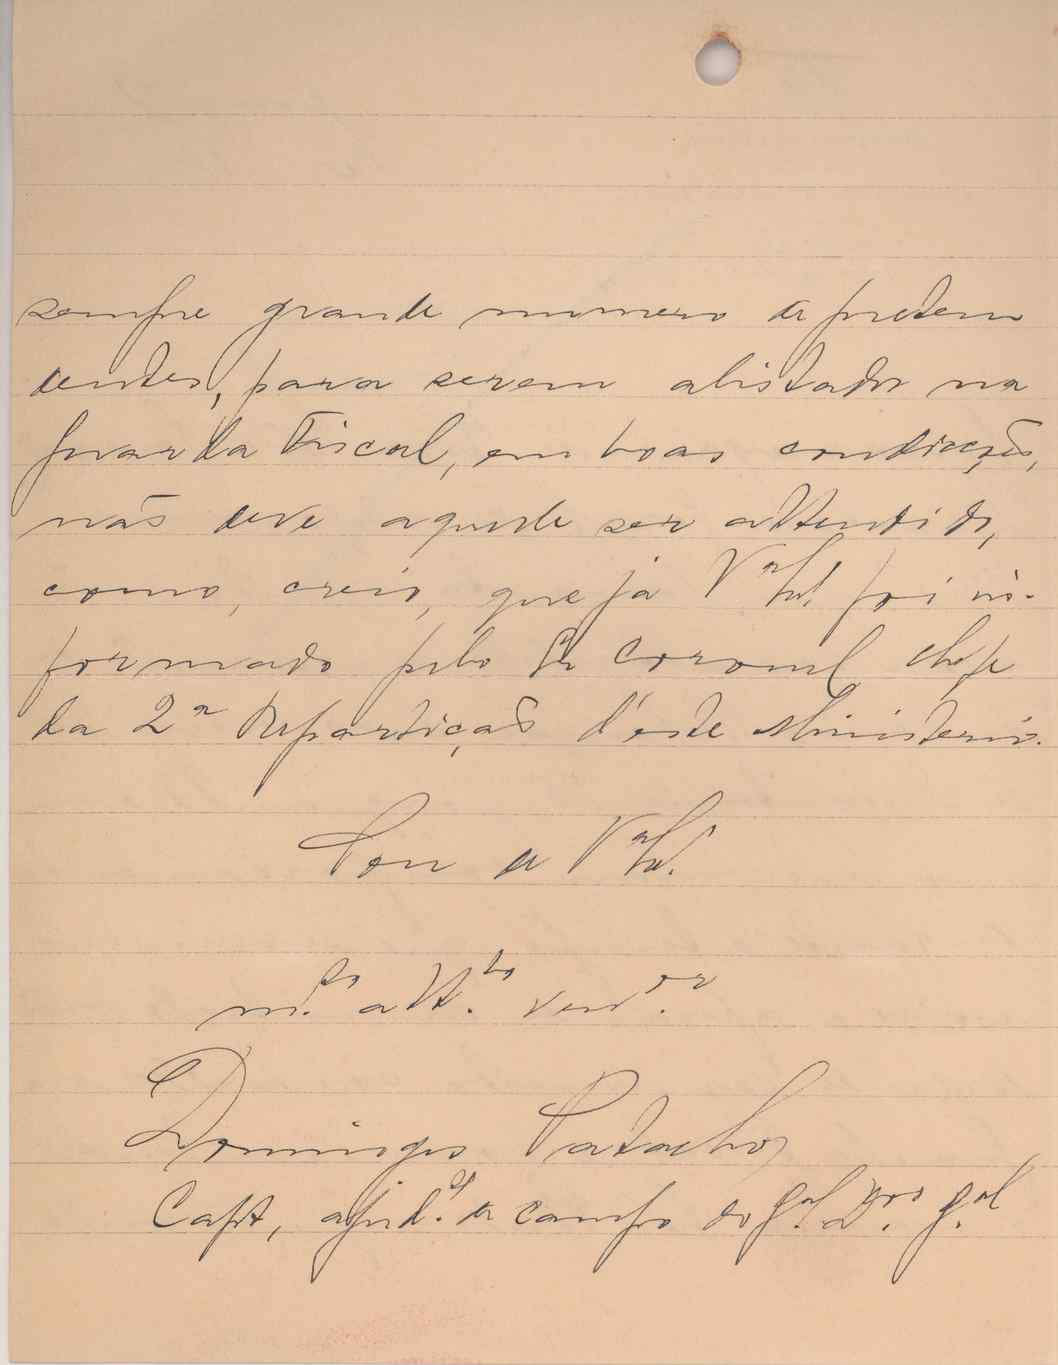 sempre grande numero de preten
dentes, para serem alistados na
guarda Fiscal, em boas condicções,
não deve aquele ser attendido,
como, creio, que já V. foi in-
formado pelo Sr Coronel chefe
da 2ª Repartição d'este Ministerio.
Sou de V.
m.to att.to ven.or
Domingos Patacho
Capt, ajud.e de campo do g.al d.or g.al